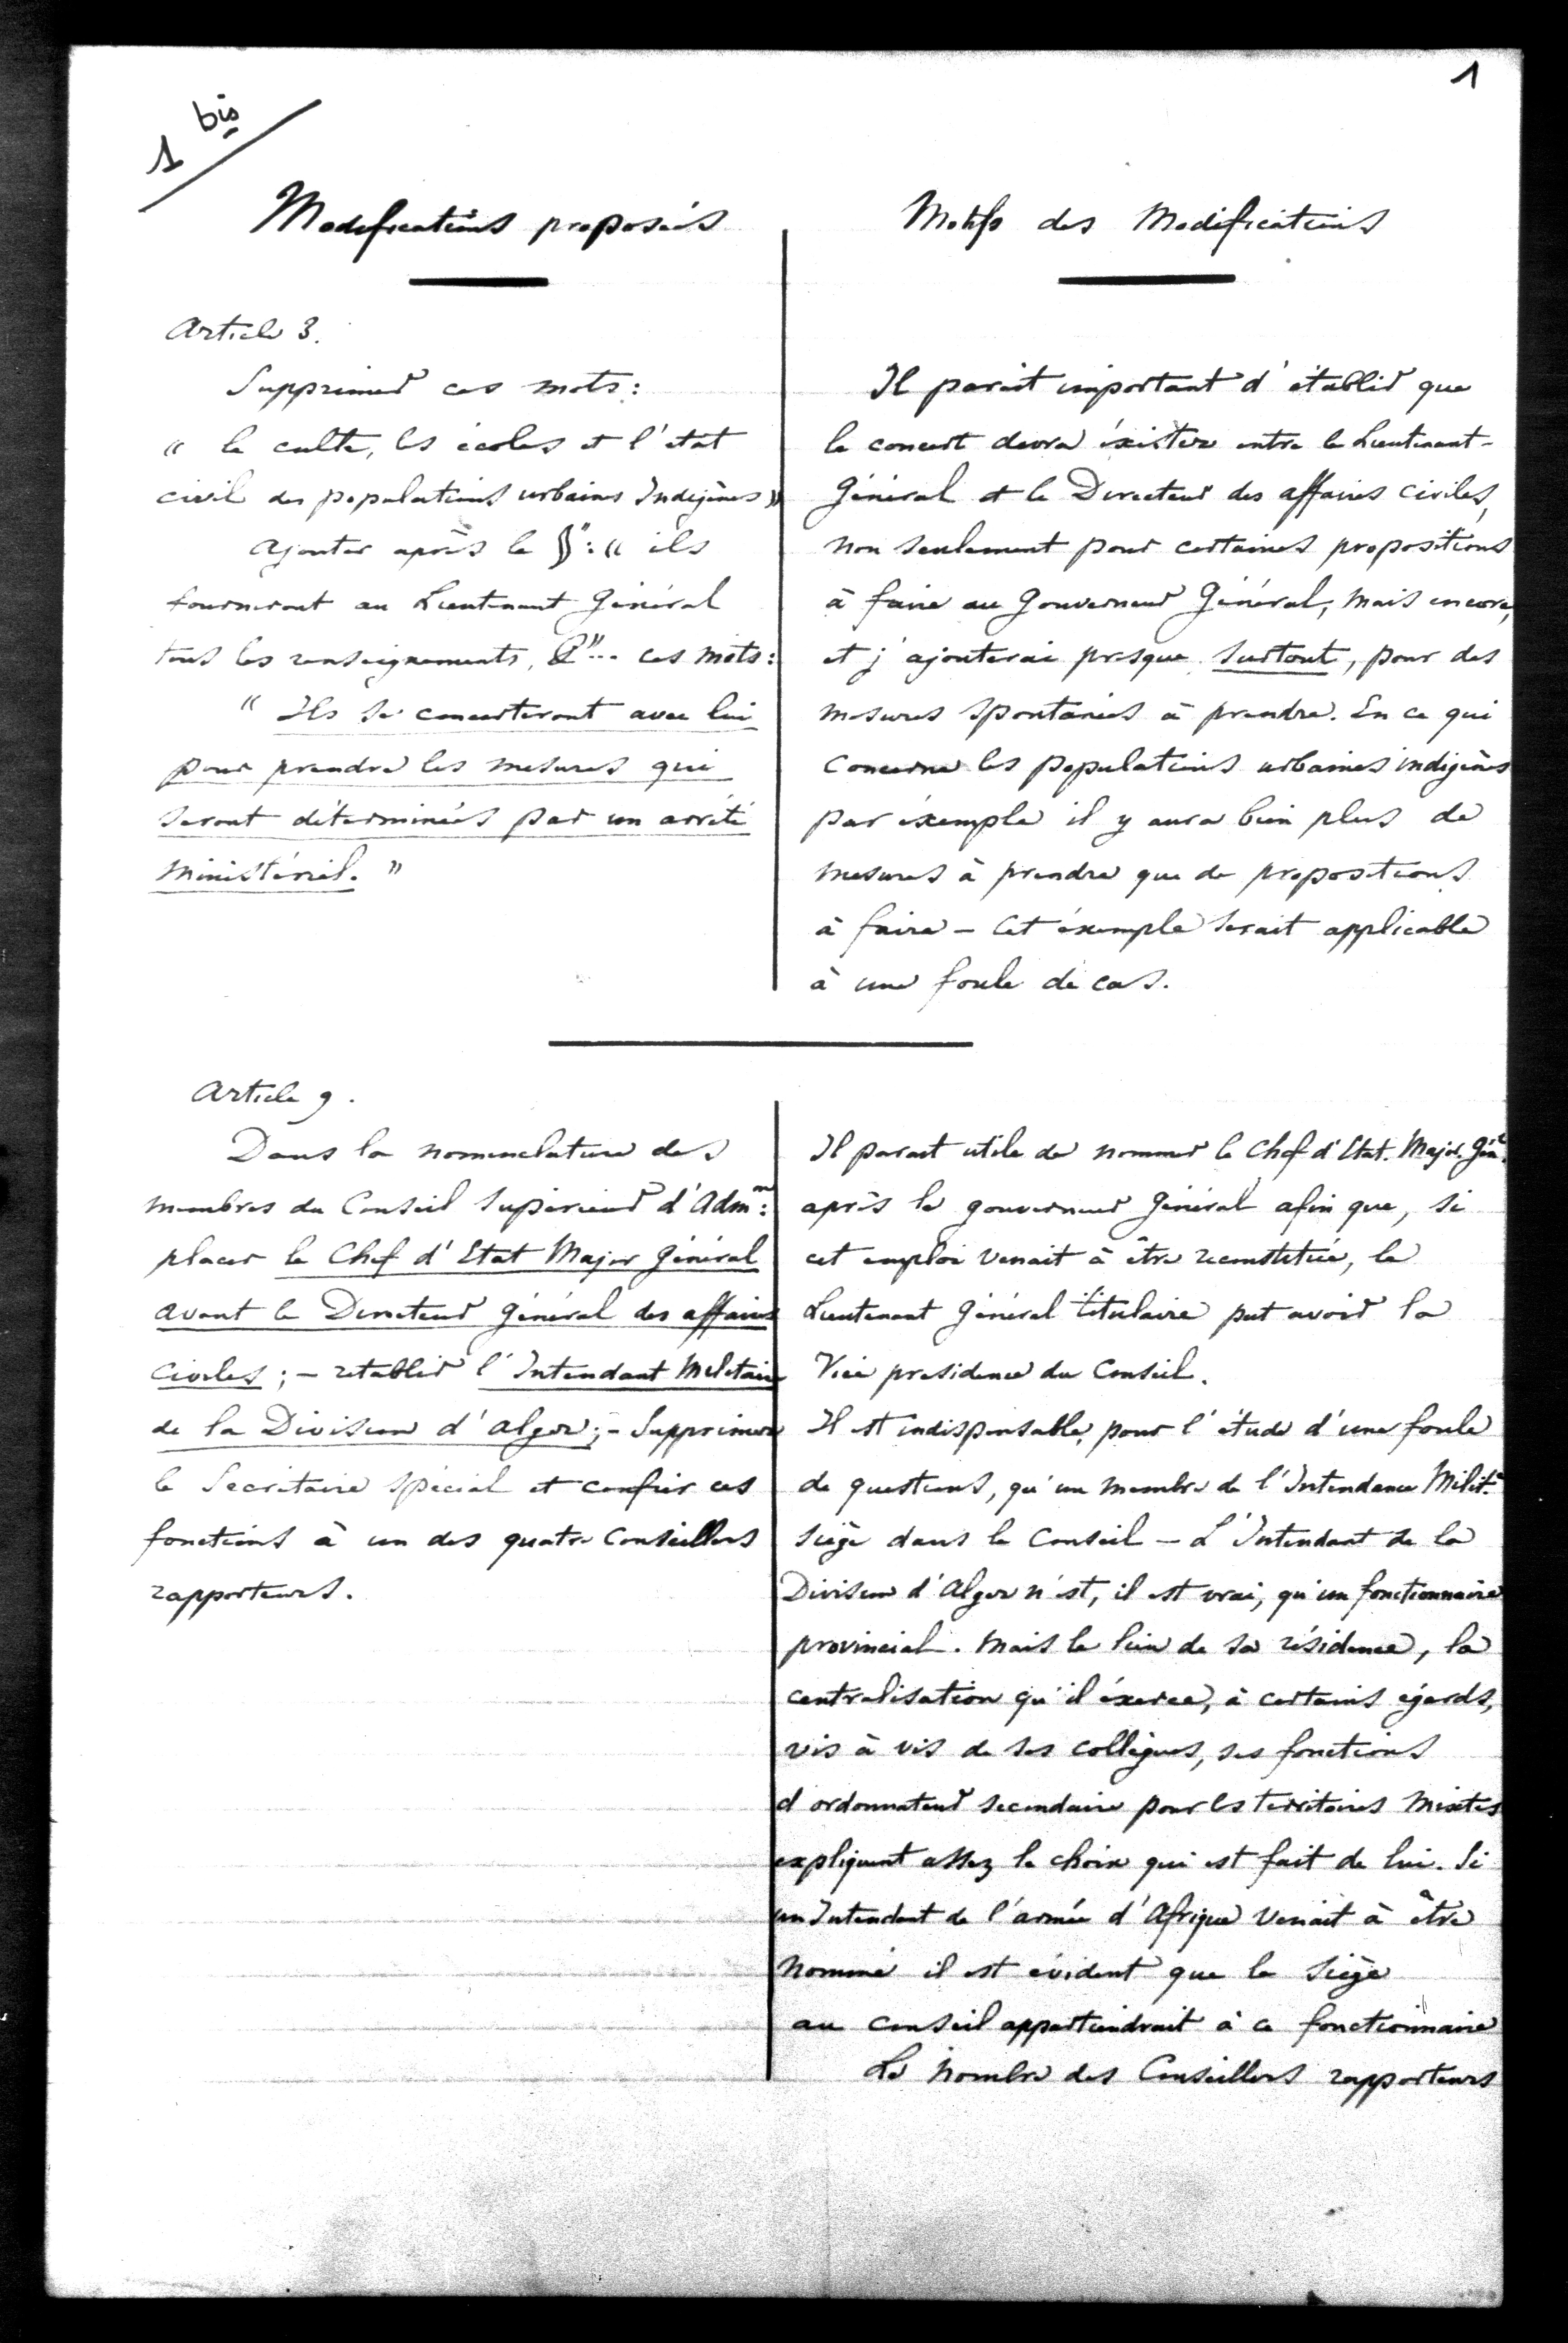 1
1 bis
Modifications proposées
Article 3.
Supprimer ces mots :
« le culte, les écoles et l'etat
civil des populations urbaines Indigènes »
Ajouter après le § : « ils
fourniront au Lieutenant Général
tous les renseignements, &a... ces mots :
" Ils se concerteront avec lui
pour prendre les mesures qui
seront déterminées par un arrêté
ministériel. "
Motifs des Modifications
Il parait important d'établir que
le concert devra éxister entre le Lieutenant-
Général et le Directeur des affaires civiles,
non seulement pour certaines propositions
à faire au Gouverneur Général, mais encore,
et j'ajouterai presque surtout, pour des
mesures spontanées à prendre. En ce qui
concerne les populations urbaines indigènes
par éxemple il y aura bien plus de
mesures à prendre que de propositions
à faire - Cet éxemple serait applicable
à une foule de cas.
Article 9.
Dans la nomenclature des
membres du Conseil supérieur d'Admon :
placer le Chef d'Etat Major Général
avant le Directeur Général des affaires
civiles ; - rétablir l'Intendant Militaire
de la Division d'Alger ; - Supprimer
le Secrétaire spécial et confier ces
fonctions à un des quatre Conseillers
rapporteurs.
Il parait utile de nommer le Chef d'Etat. Major. Gén.al
après le gouverneur Général afin que, si
cet emploi venait à être reconstitué, le
Lieutenant Général titulaire put avoir la
Vice présidence du Conseil.
Il est indispensable, pour l'étude d'une foule
de questions, qu'un membre de l'Intendance Milit.re
siège dans le Conseil - L'Intendant de la
Division d'Alger n'est, il est vrai, qu'un fonctionnaire
provincial. Mais le lieu de sa résidence, la
centralisation qu'il éxerce, à certains égards,
vis à vis de ses collègues, ses fonctions
d'ordonnateur secondaire pour les territoires mixtes
expliquent assez le choix qui est fait de lui. Si
un Intendant de l'armée d'Afrique venait à être
nommé il est évident que le siège
au conseil appartiendrait à ce fonctionnaire
Le nombre des Conseillers rapporteurs